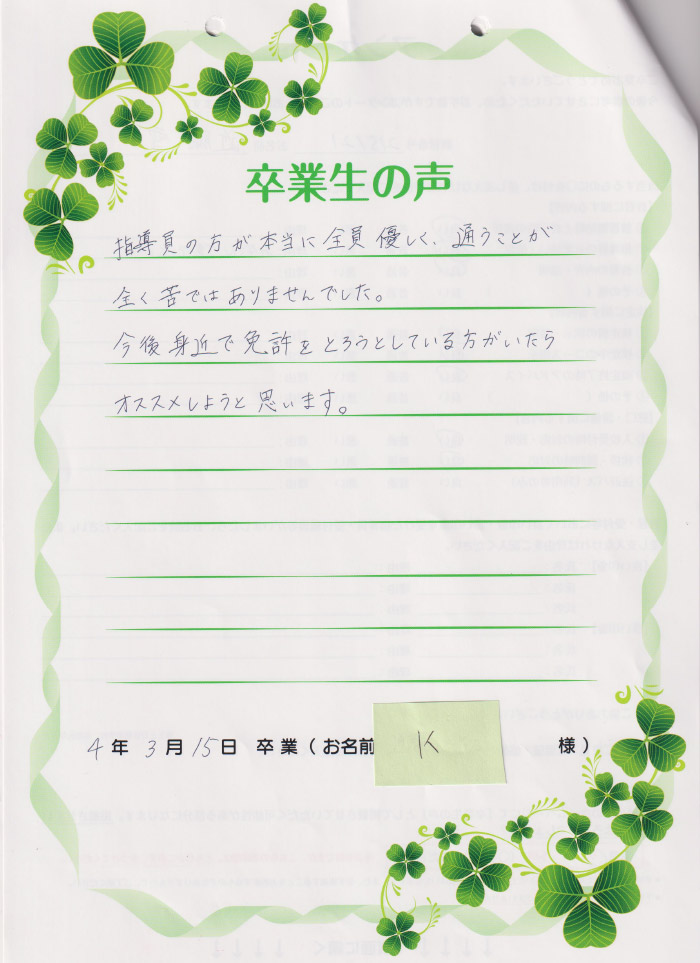 卒業生の声
指導員の方が本当に全員優しく、通うことが
全く苦ではありませんでした。
今後身近で免許をとろうとしている方がいたら
オススメしようと思います。
4年 3月 15日 卒業(お名前 K 様)